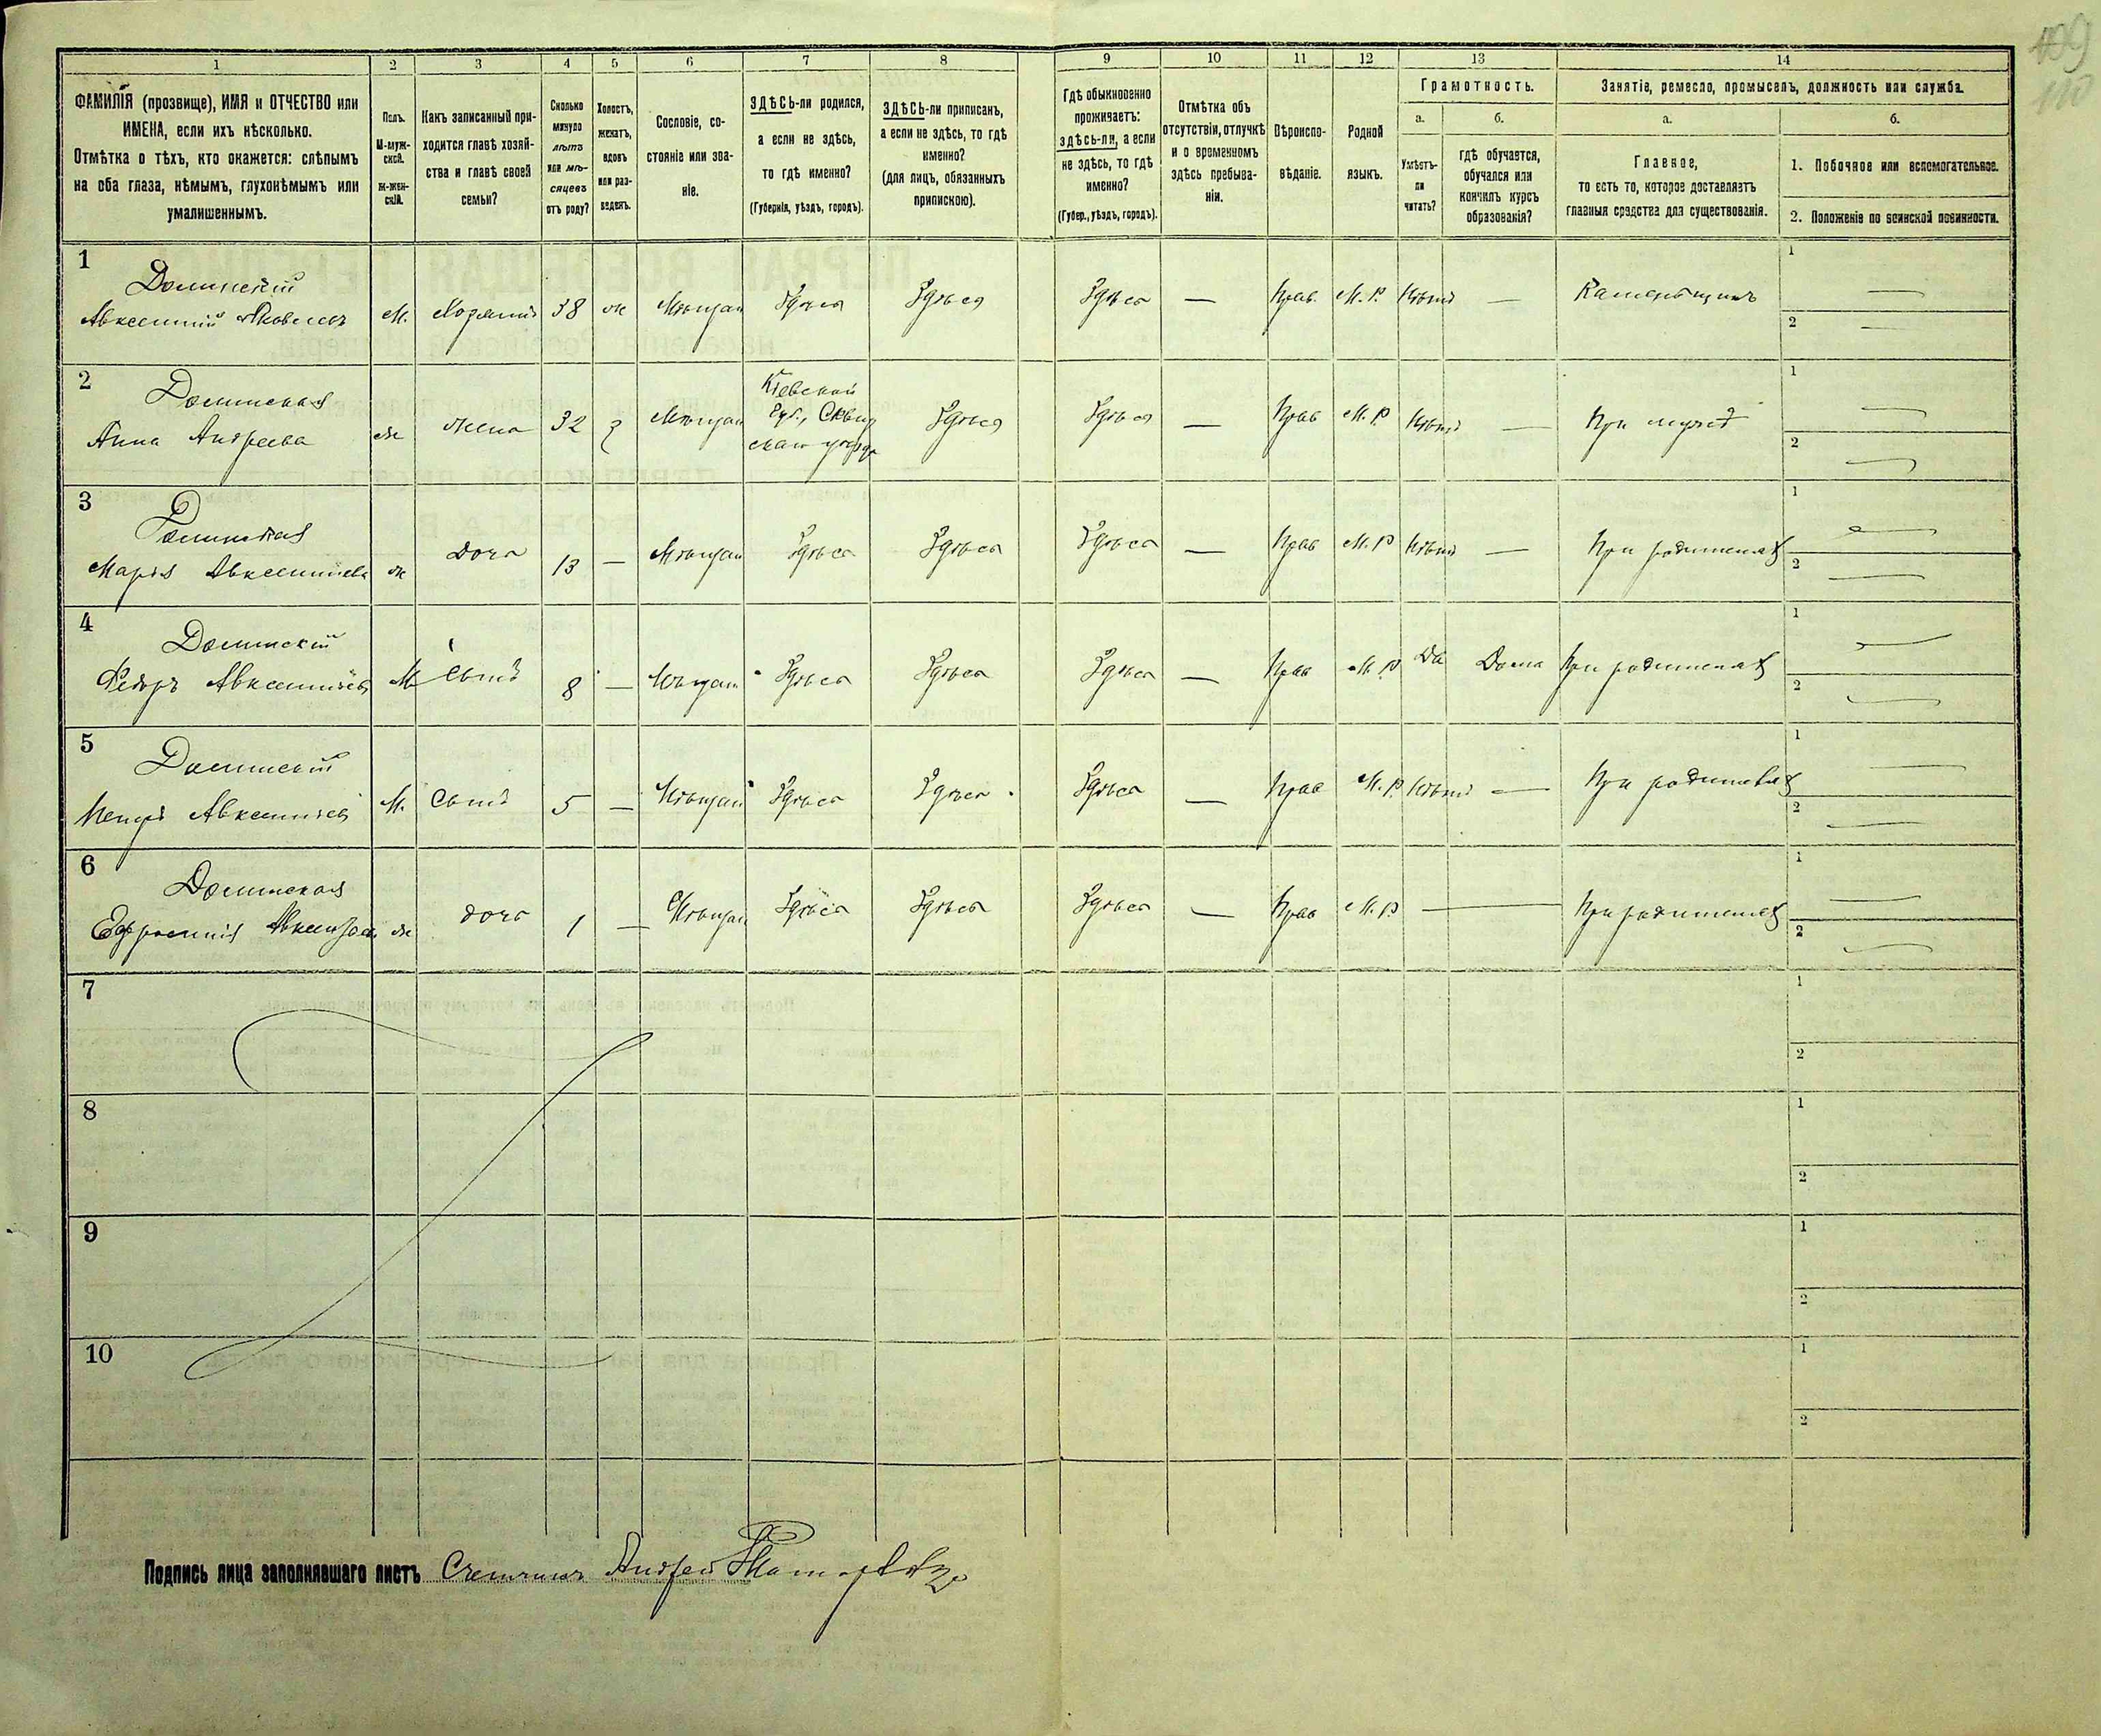 109
110
1 2 3 4 5 6 7 8 9 10 11 12 13 14
ФАМИЛІЯ (прозвище), ИМЯ и ОТЧЕСТВО или
ИМЕНА, если ихъ нѣсколько.
Отмѣтка о тѣхъ, кто окажется: слѣпымъ
на оба глаза, нѣмымъ, глухонѣмымъ или
умалишеннымъ.
Полъ.
М-муж-
ской.
ж-жен-
скій.
Какъ записанный при-
ходится главѣ хозяй-
ства и главѣ своей
семьи?
Сколько
минуло
лѣтъ
или мѣ-
сяцевъ
отъ роду?
Холостъ,
женатъ,
вдовъ
или раз-
веденъ.
Сословіе, со-
стояніе или зва-
ніе.
ЗДѢСЬ-ли родился,
а если не здѣсь,
то гдѣ именно?
(Губернія, уѣздъ, городъ).
ЗДѢСЬ-ли приписанъ,
а если не здѣсь, то гдѣ
именно?
(для лицъ, обязанныхъ
припискою).
Гдѣ обыкновенно
проживаетъ:
здѣсь-ли, а если
не здѣсь, то гдѣ
именно?
(Губер., уѣздъ, городъ).
Отмѣтка объ
отсутствіи, отлучкѣ
и о временномъ
здѣсь пребыва-
ніи.
Вѣроиспо-
вѣданіе.
Родной
языкъ.
Грамотность.
а.
Умѣетъ-
ли
читать?
б.
гдѣ обучается,
обучался или
кончилъ курсъ
образованія?
Занятіе, ремесло, промыселъ, должность или служба.
а.
Главное,
то есть то, которое доставляетъ
главныя средства для существованія.
б.
1. Побочное или вспомогательное.
2. Положеніе по воинской повинности.
1
Долинскій
Авксентій Яковлевъ м. Хозяинъ 38 ж Мѣщан Здѣся Здѣся Здѣса — Прав. М. Р. Нѣтъ — Каменьщикъ
1
2
2
Долинская
Анна Андреева ж жена 32 з Мѣщан Кіевской
Губ., Сквир
скаго уѣзда Здѣся Здѣся — Прав М. Р Нѣтъ — При мужѣ
1
2
3
Долинская
Марія Авксентіева ж дочь 13 — Мѣщан Здѣса Здѣса Здѣса — Прав М. Р Нѣтъ — При родителях
1
2
4
Долинскій
Федоръ Авксентіевъ М Сынъ 8 — Мѣщан Здѣса Здѣса Здѣса — Прав М. Р Да Дома При родителях
1
2
5
Долинскій
Петръ Авксентіев М. Сынъ 5 — Мѣщан Здѣса Здѣса Здѣса — Прав М. Р. Нѣтъ — При родителях
1
2
6
Долинская
Ефросинія ж дочь 1 — Мѣщан Здѣса Здѣса Здѣса — Прав М. Р — При родителях
1
2
7
1
2
8
1
2
9
1
2
10
1
2
Подпись лица заполнявшаго листъ Счетчикъ Андрей